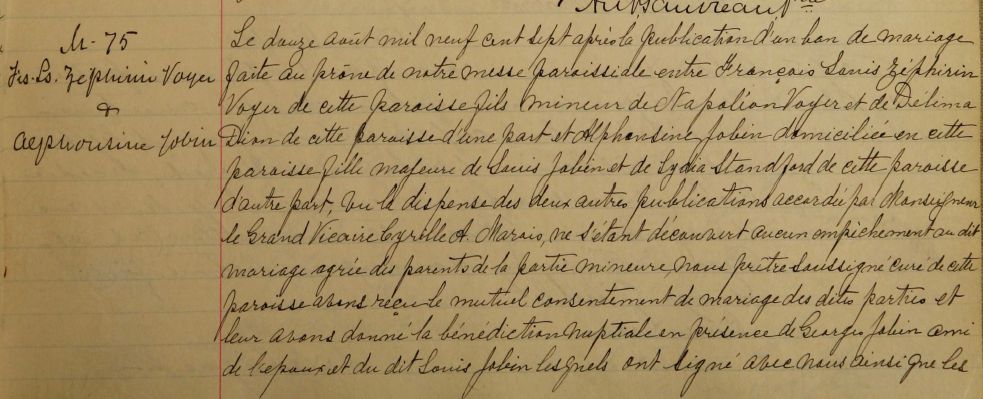 M-75
Frs-Ls. Zéphirin Voyer
&
Alphonsine Jobin
Le douze août mil neuf cent sept après la publication d'un ban de mariage
faite au prône de notre messe paroissiale entre François Louis Zéphirin
Voyer de cette paroisse fils mineur de Napoléon Voyer et de Délima
Dion de cette paroisse d'une part et Alphonsine Jobin domiciliée en cette
paroisse fille majeure de Louis Jobin et de Lydia Standford de cette paroisse
d'autre part, vu la dispense des deux autres publications accordée par Monseigneur
le Grand Vicaire Cyrille A. Marois, ne s'étant découvert aucun empêchement au dit
mariage agrée des parents de la partie mineure, nous prêtre soussigné curé de cette
paroisse avons reçu le mutuel consentement de mariage des dites parties et
leur avons donné la bénédiction nuptiale en présence de Georges Jobin ami
de l'époux et du dit Louis Jobin lesquels ont signé avec nous ainsi que les